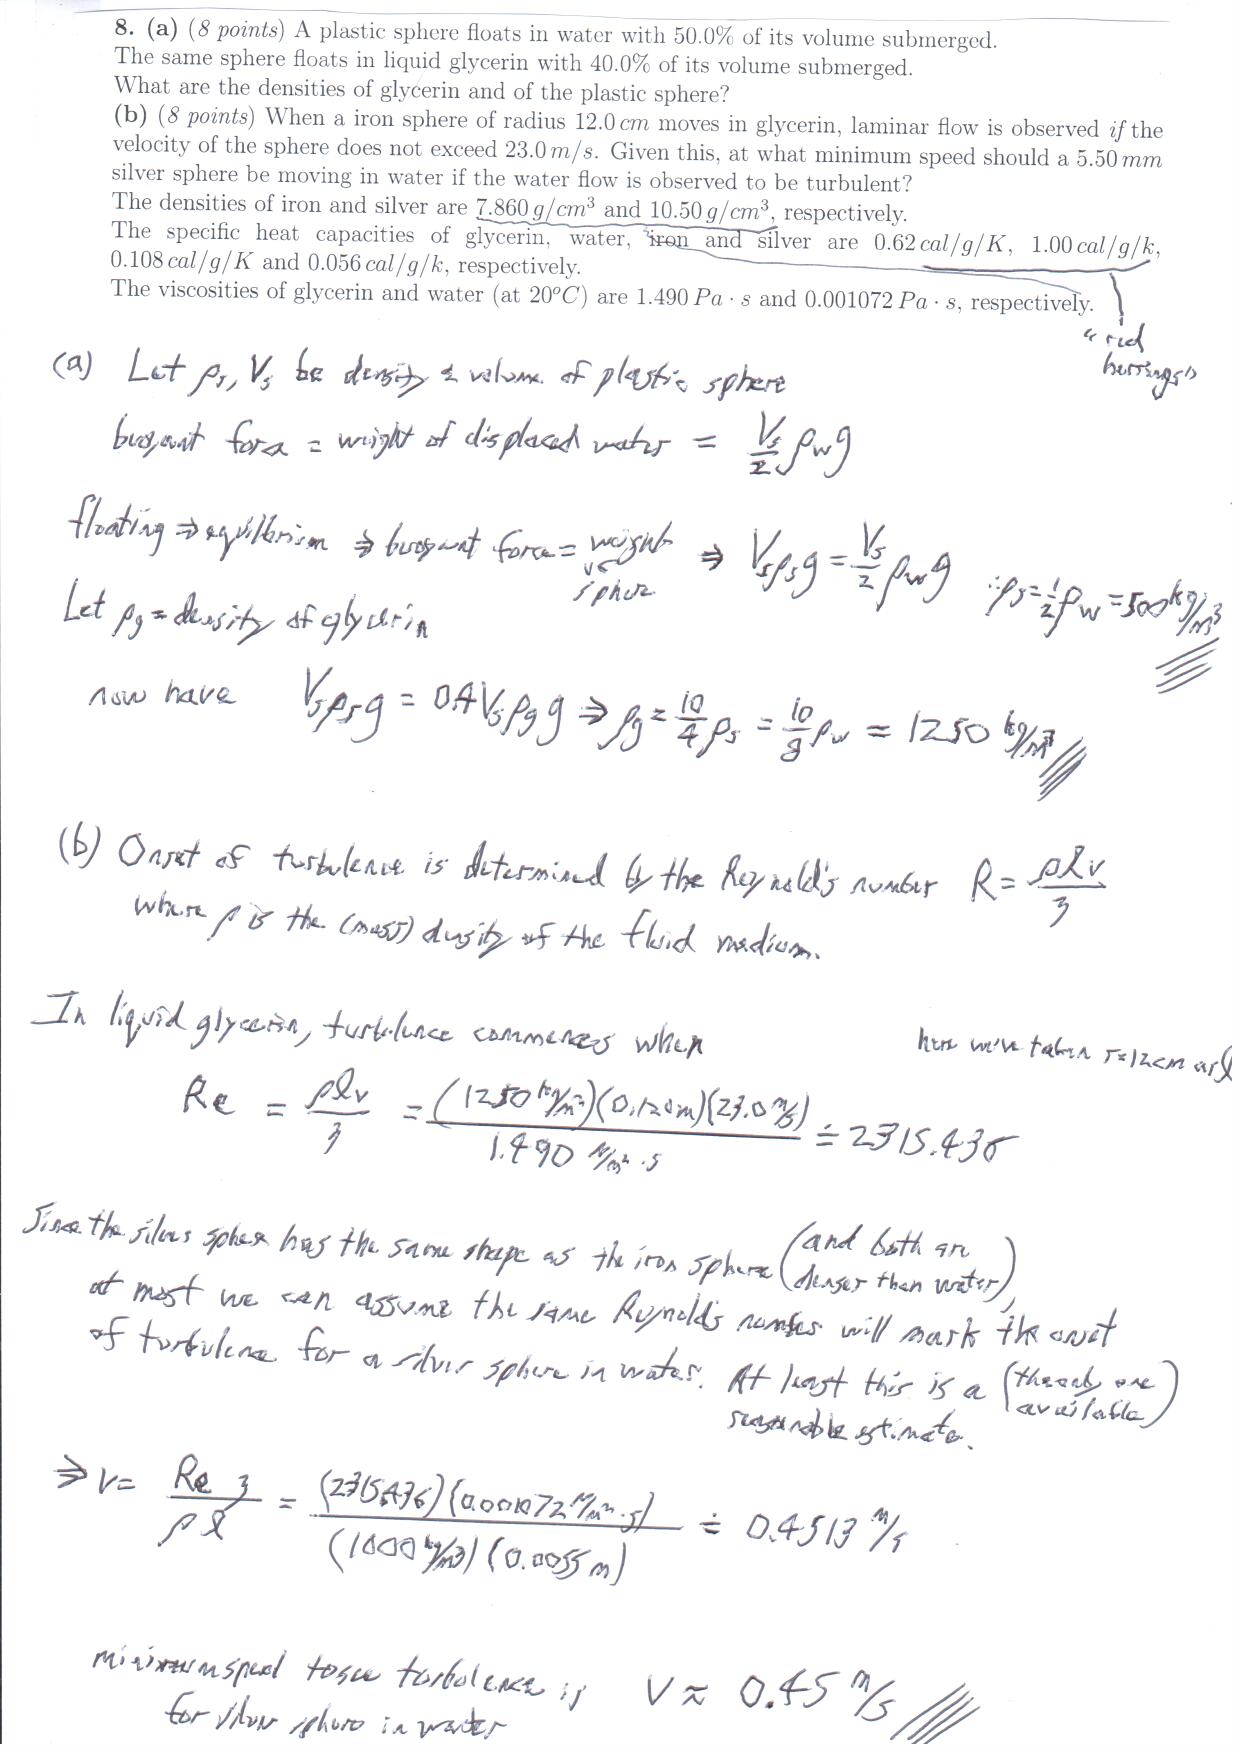 8. (a) (8 points) A plastic sphere floats in water with 50.0% of its volume submerged.
The same sphere floats in liquid glycerin with 40.0% of its volume submerged.
What are the densities of glycerin and of the plastic sphere?
(b) (8 points) When a iron sphere of radius 12.0 cm moves in glycerin, laminar flow is observed if the
velocity of the sphere does not exceed 23.0 m/s. Given this, at what minimum speed should a 5.50 mm
silver sphere be moving in water if the water flow is observed to be turbulent?
The densities of iron and silver are 7.860 g/cm³ and 10.50 g/cm³, respectively.
The specific heat capacities of glycerin, water, iron and silver are 0.62 cal/g/K, 1.00 cal/g/k,
0.108 cal/g/K and 0.056 cal/g/k, respectively.
The viscosities of glycerin and water (at 20°C) are 1.490 Pa · s and 0.001072 Pa · s, respectively.
"red
herrings"
(a) Let ρs, Vs be density & volume of plastic sphere
buoyant force = weight of displaced water = Vs/2 ρw g
floating ⇒ equilibrium ⇒ buoyant force = weight of sphere ⇒ Vs ρs g = Vs/2 ρw g ∴ ρs = 1/2 ρw = 500 kg/m³
Let ρg = density of glycerin
now have Vs ρs g = 0.4 Vs ρg g ⇒ ρg = 10/4 ρs = 10/8 ρw = 1250 kg/m³
(b) Onset of turbulence is determined by the Reynold's number R = ρlv/η
where ρ is the (mass) density of the fluid medium.
In liquid glycerin, turbulence commences when
here we've taken r=12cm as l
Re = ρlv/η = (1250 kg/m³)(0.120m)(23.0 m/s) / 1.490 N/m² · s ≐ 2315.436
Since the silver sphere has the same shape as the iron sphere (and both are denser than water),
at most we can assume the same Reynold's number will mark the onset
of turbulence for a silver sphere in water. At least this is a (the only one available)
reasonable estimate.
⇒ v = Re η / ρ l = (2315.436)(0.001072 N/m² · s) / (1000 kg/m³)(0.0055 m) ≐ 0.4513 m/s
minimum speed to see turbulence is v ≈ 0.45 m/s
for silver sphere in water